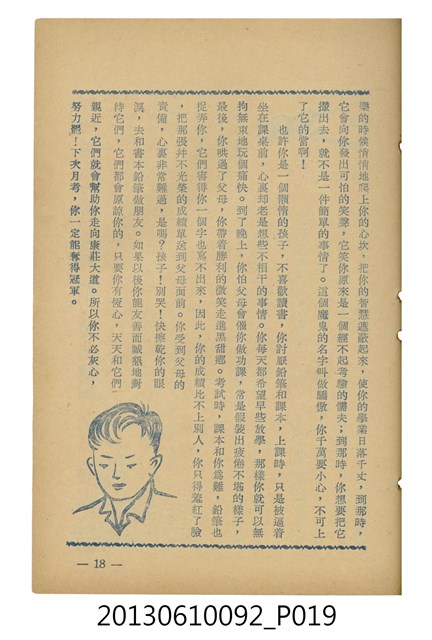 樂的時候悄悄地爬上你的心坎，把你的智慧遮蔽起來，使你的學業日落千丈，到那時，
它會向你發出可怕的笑聲，它笑你原來是一個經不起考驗的懦夫；到那時，你想要把它
攆出去，就不是一件簡單的事情了。這個魔鬼的名字叫做驕傲，你千萬要小心，不可上
了它的當啊！
也許你是一個懶惰的孩子，不喜歡讀書，你討厭鉛筆和課本，上課時，只是被逼着
坐在課桌前，心裏却老是想些不相干的事情。你每天都希望早些放學，那樣你就可以無
拘無束地玩個痛快。到了晚上，你怕父母會催你做功課，常是假裝出疲倦不堪的樣子，
最後，你哄過了父母，你帶着勝利的微笑走進黑甜鄉。考試時，課本和你爲難，鉛筆也
捉弄你，它們害得你一個字也寫不出來，因此，你的成績比不上別人，你只得羞紅了臉
，把那張并不光榮的成績單送到父母面前。你受到父母的
責備，心裏非常難過，是嗎？孩子！別哭！快擦乾你的眼
淚，去和書本鉛筆做朋友。如果以後你能友善而誠懇地對
待它們，它們都會原諒你的，只要你有恆心，天天和它們
親近，它們就會幫助你走向康莊大道。所以你不必灰心，
努力罷！下次月考，你一定能奪得冠軍。
— 18 —
20130610092_P019